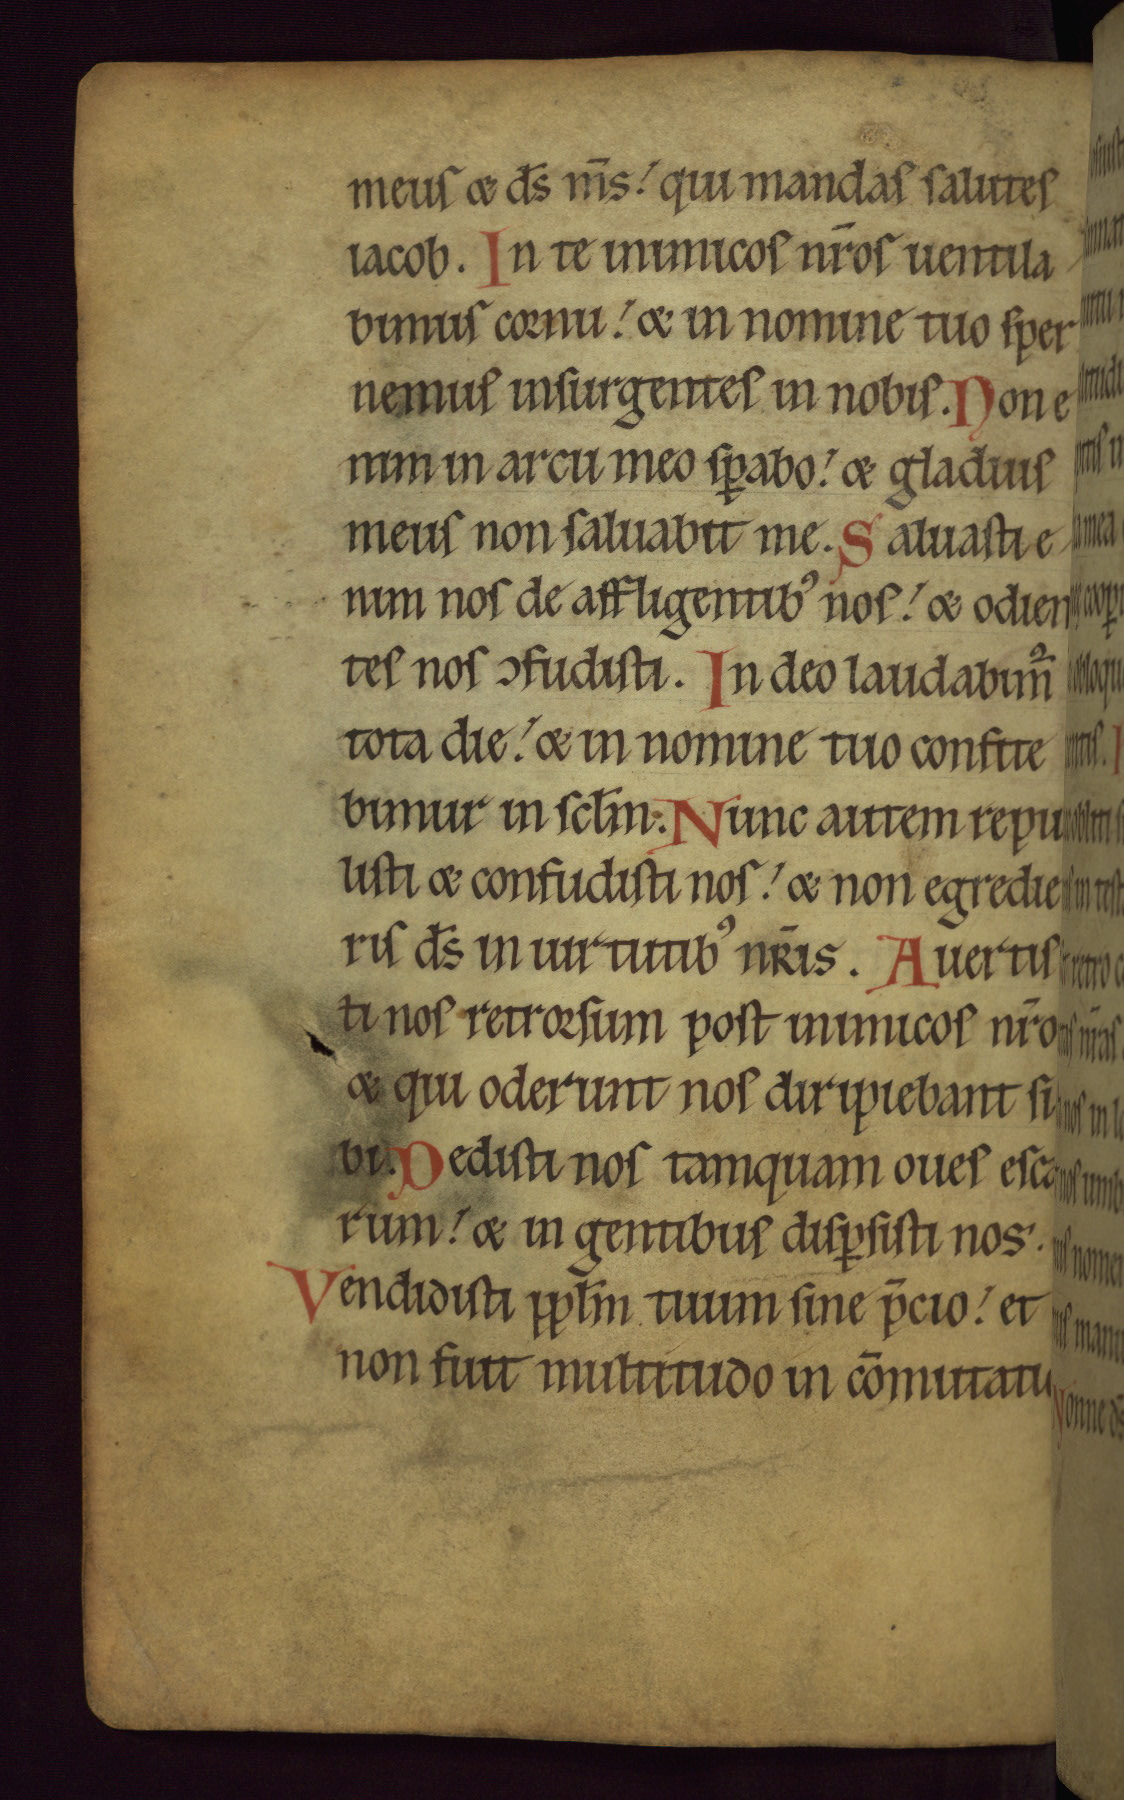 meus & ds̄ m̄s! qui mandas salutes
iacob. In te inimicos nr̄os uentila
bimus cornu! & in nomine tuo sper
nemus insurgentes in nobis. Non e
nim in arcu meo sꝑabo! & gladius
meus non saluabit me. Saluasti e
nim nos de affligentibꝰ nos! & odien
tes nos ↄfudisti. In deo laudabim᷒
tota die! & in nomine tuo confite
bimur in sclm̄. Nunc autem repu
listi & confudisti nos! & non egredie
ris ds̄ in uirtutibꝰ nr̄is. Auertis
ti nos retrorsum post inimicos nr̄o
& qui oderunt nos diripiebant si
bi. Dedisti nos tamquam oues esca
rum! & in gentibus disꝑsisti nos.
Vendidisti pplm̄ tuum sine p̄cio! et
non fuit multitudo in cōmutatu